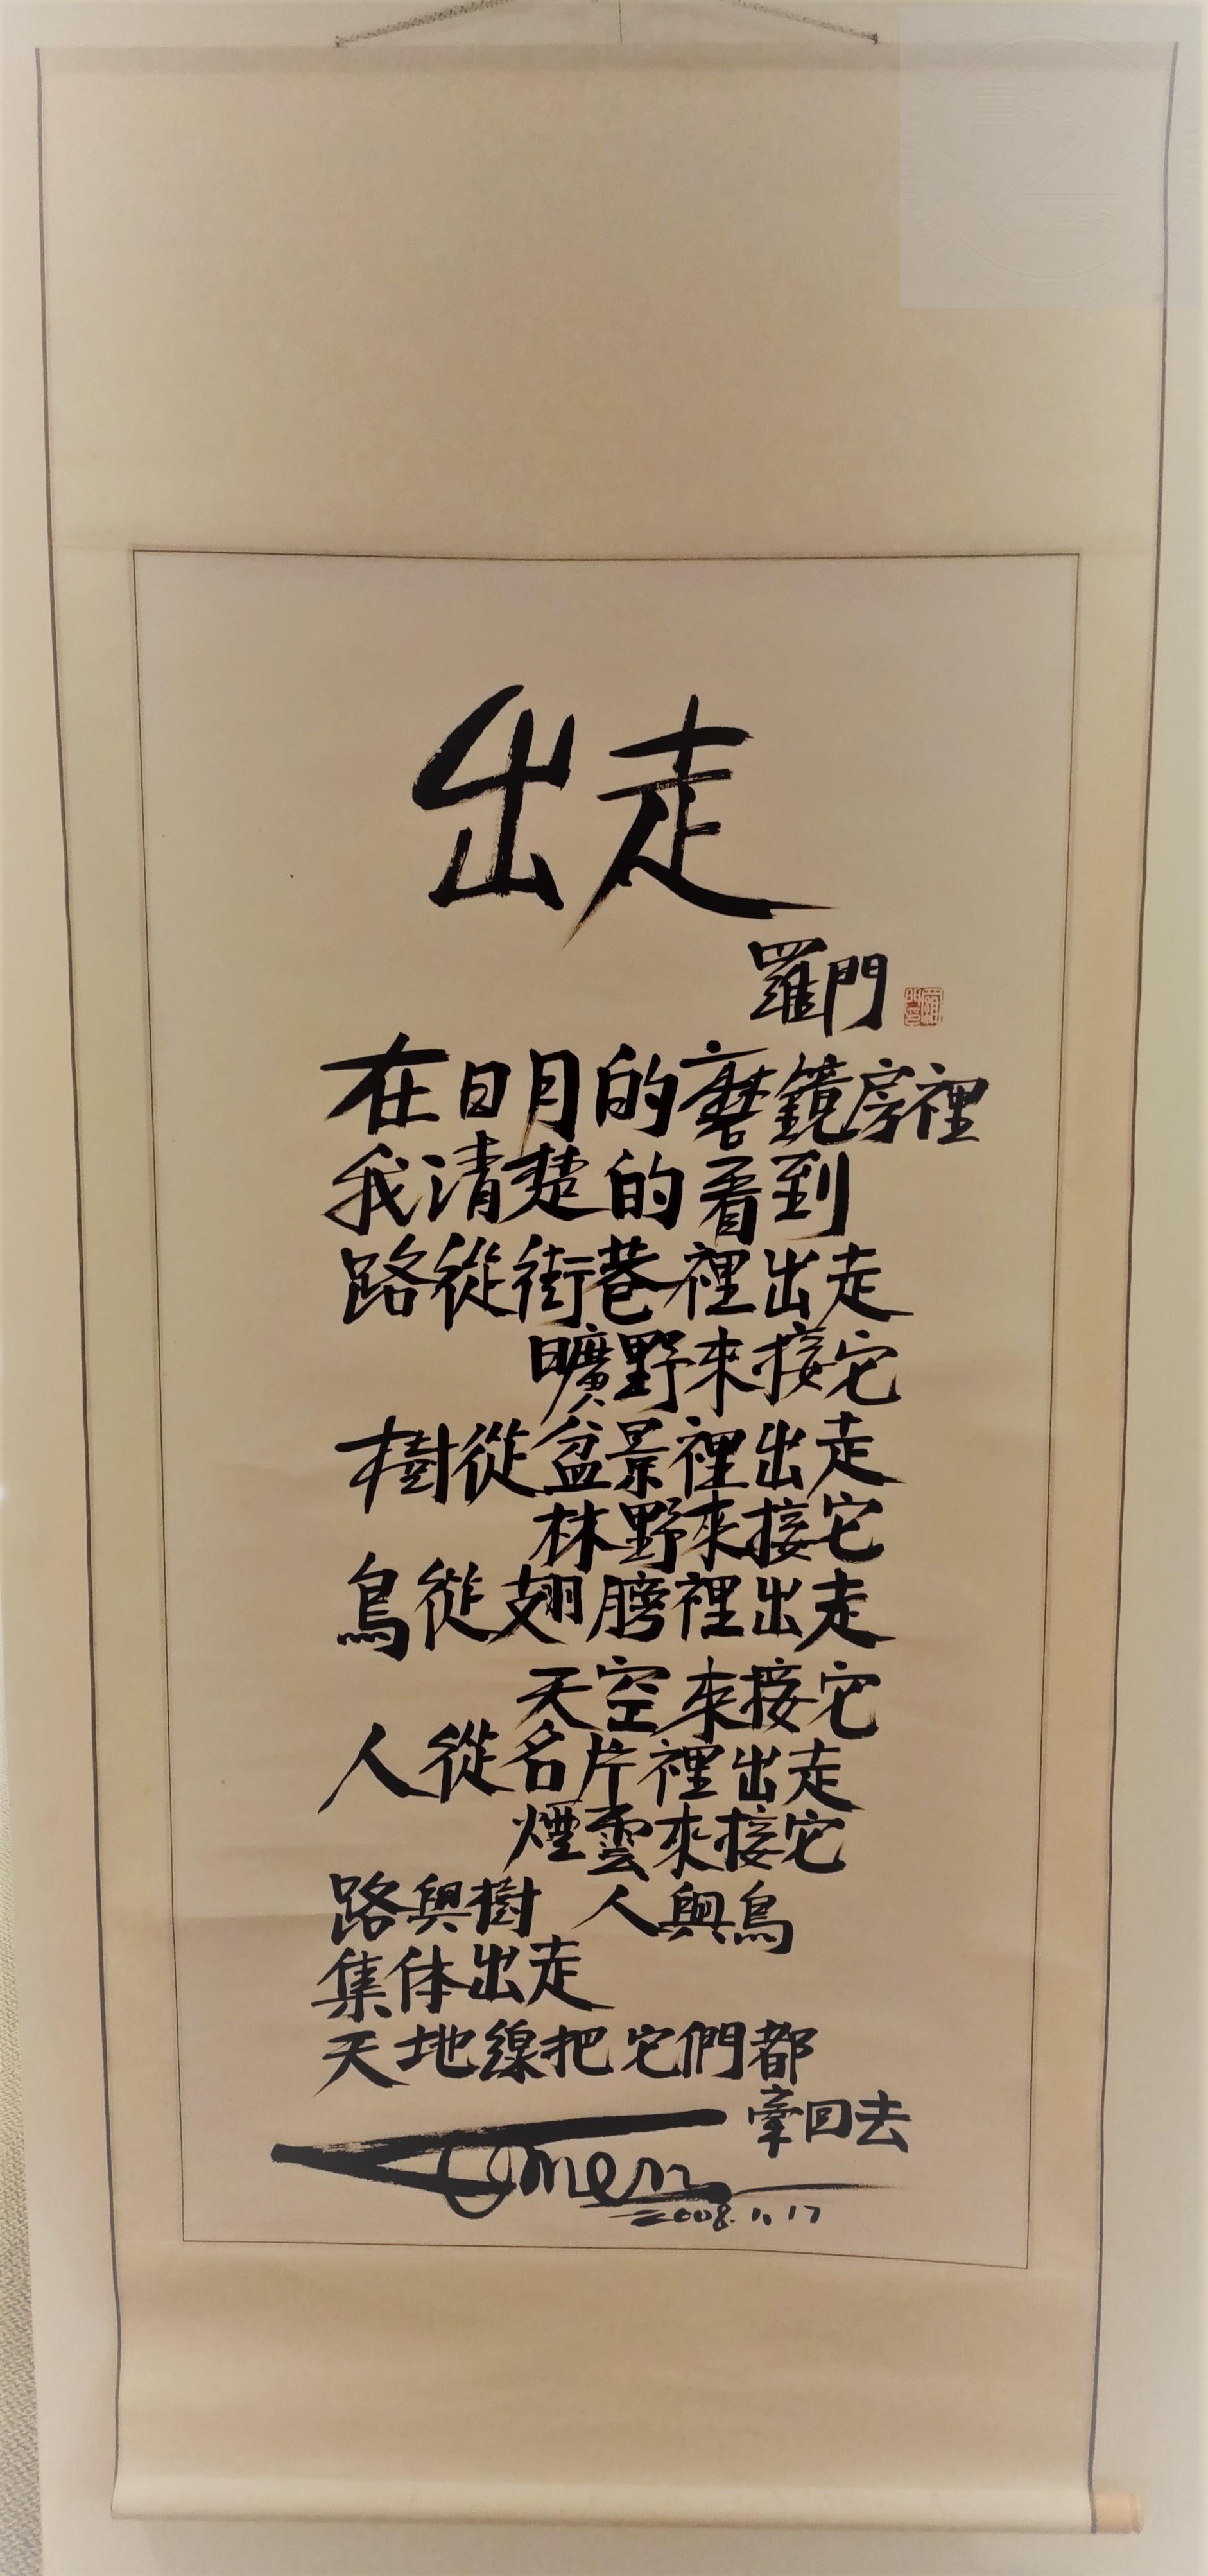 出走
羅門
在日月的磨鏡房裡
我清楚的看到
路從街巷裡出走
曠野來接它
樹從盆景裡出走
林野來接它
鳥從翅膀裡出走
天空來接它
人從名片裡出走
煙雲來接它
路與樹 人與鳥
集体出走
天地線把它們都
牽回去
Lomen
2008.1.17